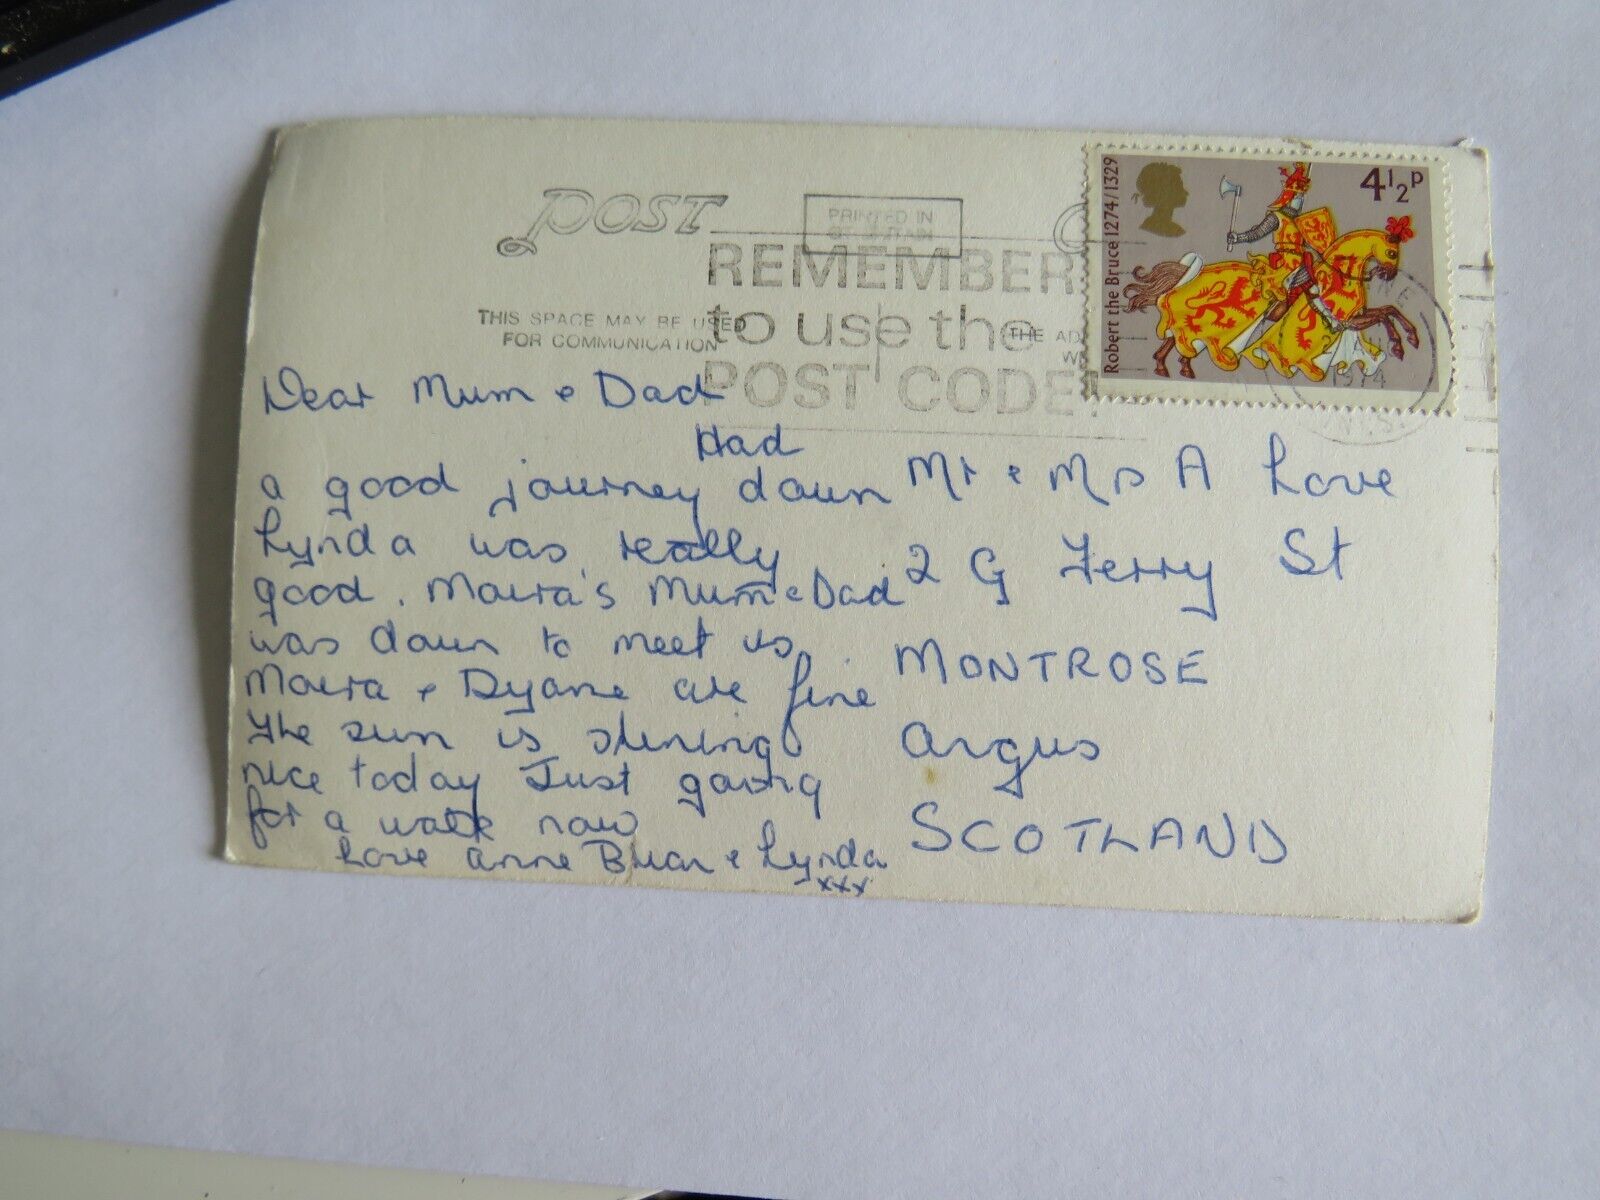 POST
PRINTED IN
GT BRITAIN
REMEMBER
to use the
POST CODE
THIS SPACE MAY BE USED
FOR COMMUNICATION
THE AD
Robert the Bruce 1274/1329
4½P
1974
Dear Mum & Dad
Had
a good journey down
Lynda was really
good. Moira's Mum & Dad
was down to meet us.
Moira & Dyane are fine
The sun is shining
nice today Just going
for a walk now
Love Anne Brian & Lynda
xxx
Mr & Mrs A Love
2 G Ferry St
MONTROSE
Angus
SCOTLAND